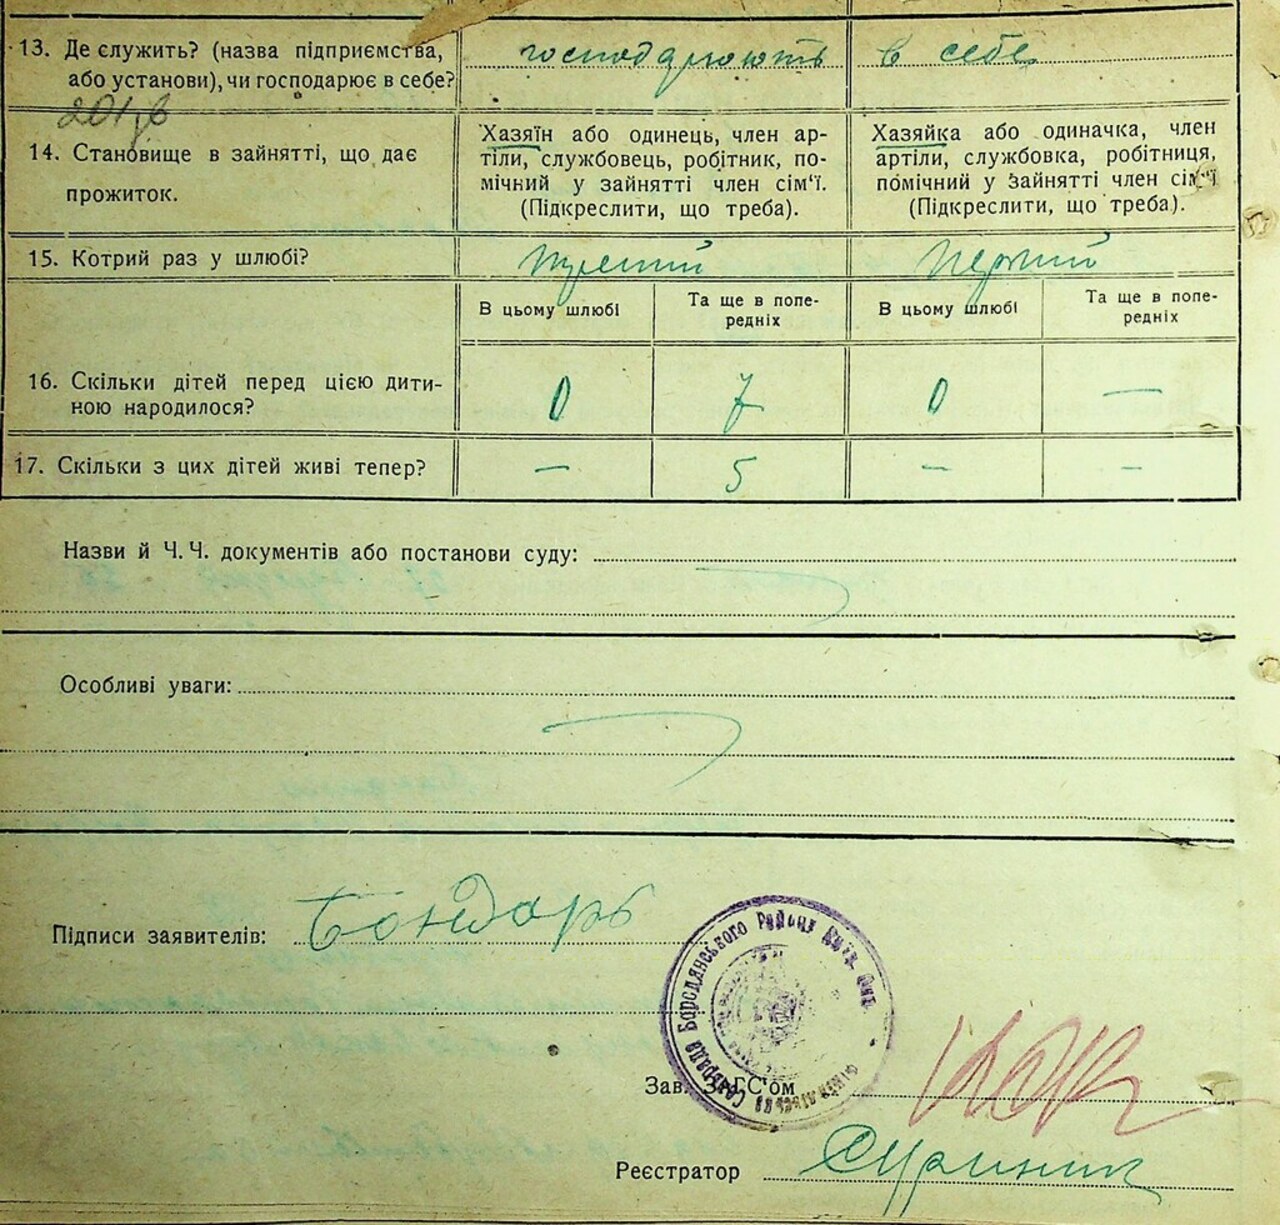 13. Де служить? (назва підприємства, господарюють в себе
або установи), чи господарює в себе?
14. Становище в зайнятті, що дає
прожиток.
Хазяїн або одинець, член ар-
тіли, службовець, робітник, по-
мічний у зайнятті член сім'ї.
(Підкреслити, що треба).
Хазяйка або одиначка, член
артіли, службовка, робітниця,
помічний у зайнятті член сім'ї
(Підкреслити, що треба).
15. Котрий раз у шлюбі? третій первий
В цьому шлюбі
Та ще в попе-
редніх
В цьому шлюбі
Та ще в попе-
редніх
16. Скільки дітей перед цією дити-
ною народилося?
0 7 0 —
17. Скільки з цих дітей живі тепер? — 5 — —
Назви й Ч. Ч. документів або постанови суду:
Особливі уваги:
Підписи заявителів: Бондарь
Бородянського Району
Зав. ЗАГС'ом
Реєстратор